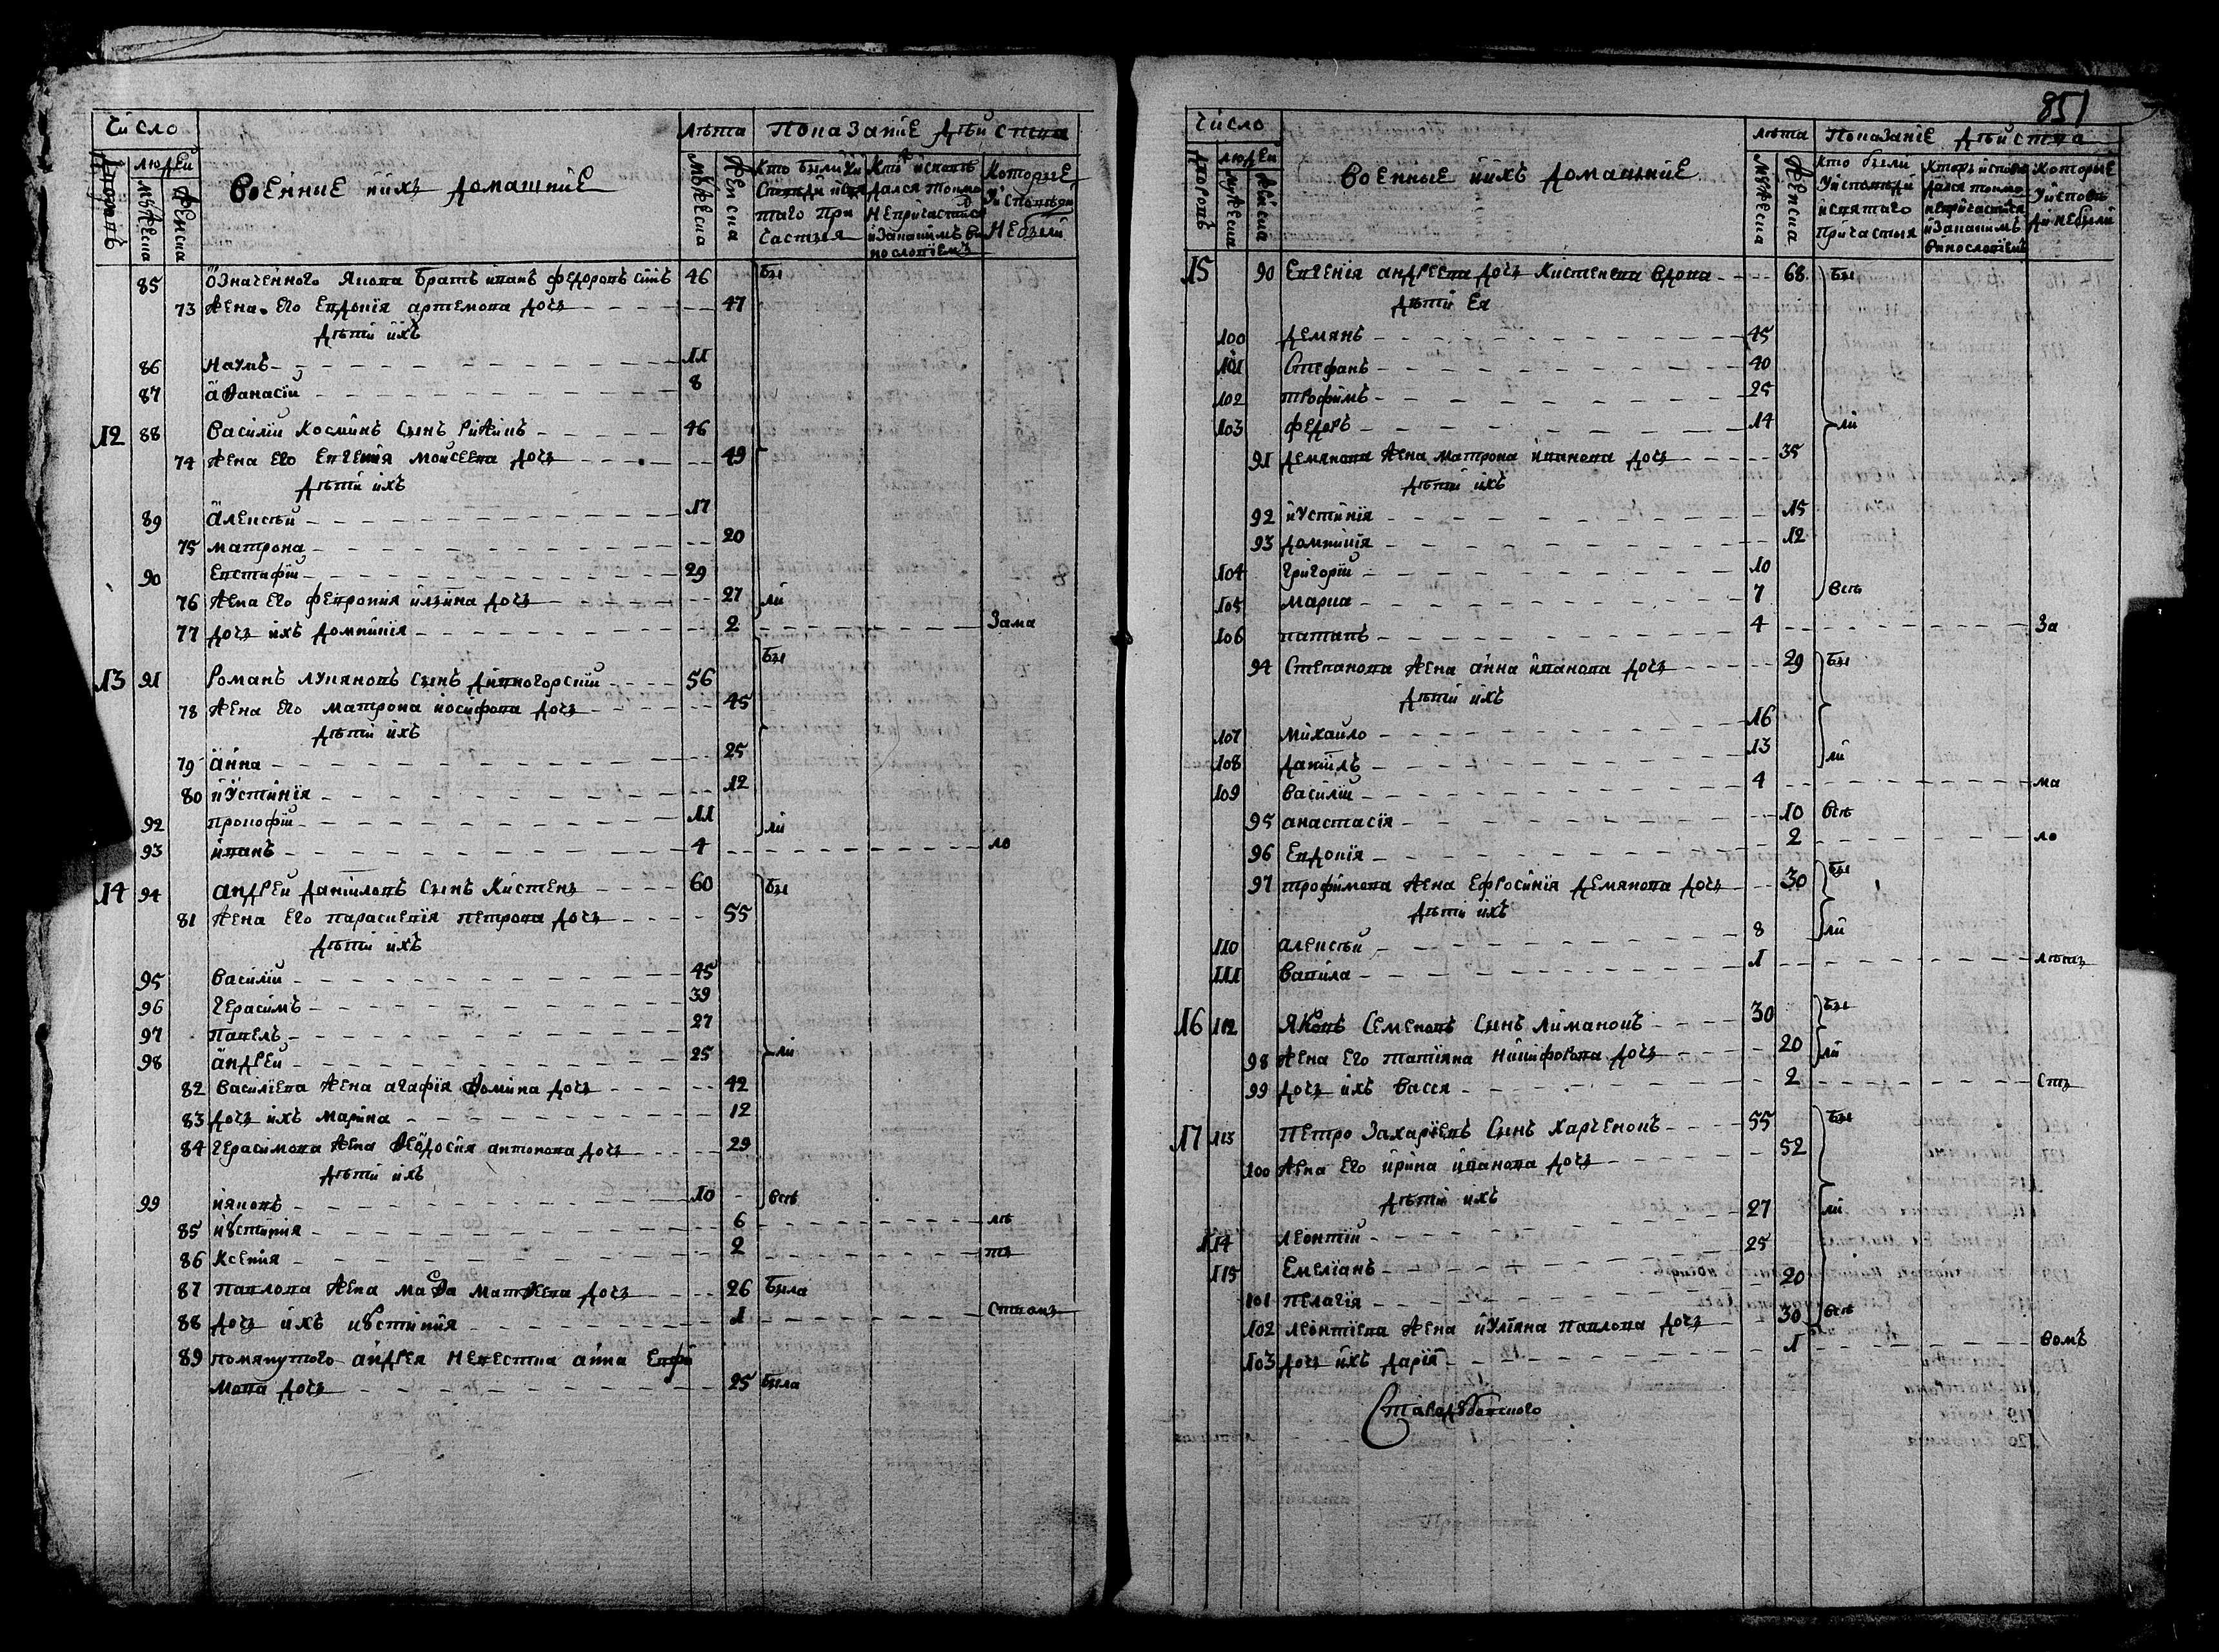 Число
Лѣта Показанїе дѣйства
дворовъ
людей
мужеска
женска
Военние ийхъ домашнйе
мужеска
женска
Кто были уи
споведи исвя
таго при
частыя
Кто исповѣ
дался токмо
непричастился
изакакимъ ви
нословїемъ
Которые
уисповѣди
небыли
85 ОЗначенного Якова братъ иванъ федоровъ снъ 46 Бы
73 жена его Евдокія артемова дочь 47
Дѣти ихъ
86 Наумъ 11
87 аѳанасїй 8
12 88 Василїй Косминъ сынъ Рижинъ 46
74 жена его Евгенія Мойсеева дочь 49
Дѣти ихъ
89 алексѣй 17
75 матрона 20
90 Евстафїй 29
76 жена его февронія ильина дочь 27 ли
77 дочь ихъ домникїя 2 Зама
Бы
13 91 Романъ лукяновъ сынъ дикногорский 56
78 жена его матрона йосифова дочь 45
Дѣти ихъ
79 анна 25
80 иустинїя 12
92 прокофїй 11 ли
93 иванъ 4 ло
14 94 андрей данїиловъ сынъ Кистень 60 Бы
81 жена его параскевїя петрова дочь 55
Дѣти ихъ
95 Василїй 45
96 Герасимъ 39
97 павелъ 27
98 андрей 25 ли
82 Василїева жена агафїя ѳомина дочь 42
83 дочь ихъ марина 12
84 герасимова жена ѳеодосия антонова дочь 29
Дѣти ихъ
99 ияковъ 10 всѣ
85 иустинія 6 лѣ
86 Ксенія 2 тъ
87 павлова жена марѳа матѳеева дочь 26 Была
88 дочь ихъ иустинїя 1 Ствомъ
89 помянутого андрея невестка анна Ефи
мова дочь 25 Была
851
Число
лѣта Показанїе дѣйства
дворовъ
людей
мужеска
женска
Военные ийхъ домашнйе
мужеска
женска
Кто были
уисповѣди
исвятаго
причастыя
Кторъ испове
дался токмо
непричастился
изакакимъ
винословїемъ
которые
уиспове
ди небыли
15 90 Евгенія андреева дочь Кистенева вдова 68 Бы
Дѣти Ея
100 демянъ 45
101 Стефанъ 40
102 трофимъ 25
103 федоръ 14 ли
91 демянова жена матрона иванова дочь 35
Дѣти ихъ
92 иустинїя 15
93 домникїя 12
104 григорїй 10
105 марка 7 всѣ
106 патапъ 4 За
94 Степанова жена анна иванова дочь 29 Бы
Дѣти ихъ
107 михайло 16
108 данїилъ 13 ли
109 василїй 4 ма
95 анастасїя 10 всѣ
96 Евдокїя 2 ло
97 трофимова жена Ефросинїя демянова дочь 30 Бы
Дѣти ихъ
110 алексѣй 8 ли
111 вавила 1 лѣтъ
16 112 Яковъ Семеновъ сынъ лиманонъ 30 Бы
98 жена его татїяна никифорова дочь 20 ли
99 дочь ихъ васса 2 Стъ
17 113 Петро Захарїевъ сынъ Харченонъ 55 Бы
100 жена его ирина иванова дочь 52
Дѣти ихъ
114 леонтїй 27 ли
115 Емелїанъ 25
101 пелагїя 20
102 леонтїева жена иулїяна павлова дочь 30 всѣ
103 дочь ихъ дарїя 1 вомъ
Стародубовского